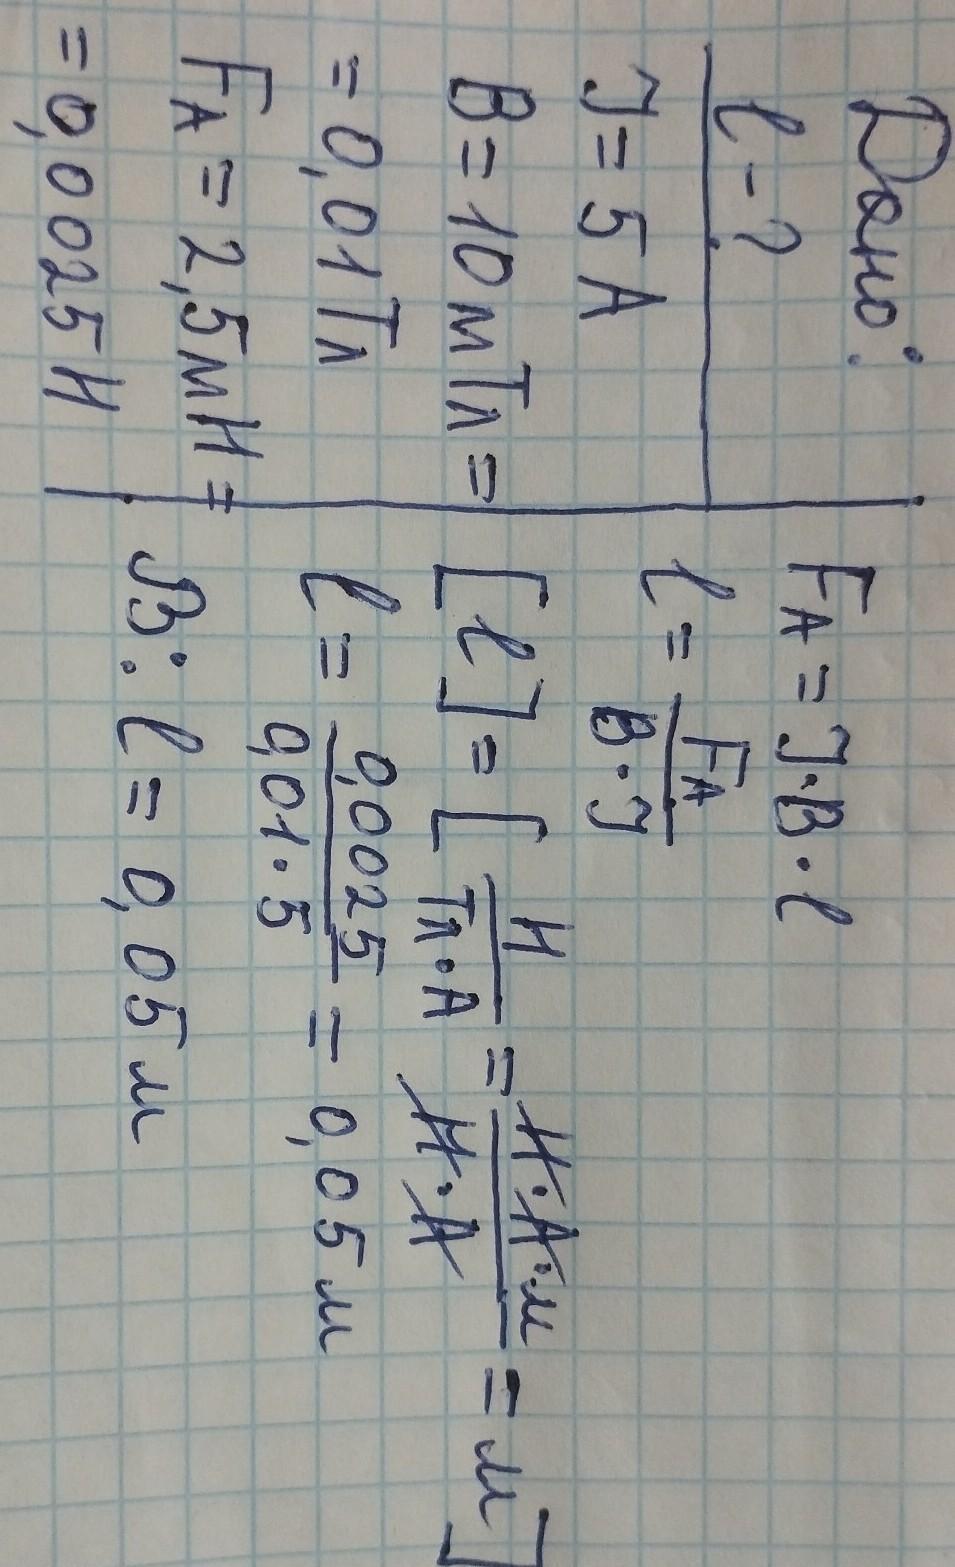 Дано:
l - ?
J = 5 A
B = 10 мТл =
= 0,01 Тл
FА = 2,5 мН =
= 0,0025 Н
FА = J·B·l
l = FА / B·J
[l] = [Н / Тл·А = Н·А·м / Н·А = м]
l = 0,0025 / 0,01·5 = 0,05 м
В: l = 0,05 м